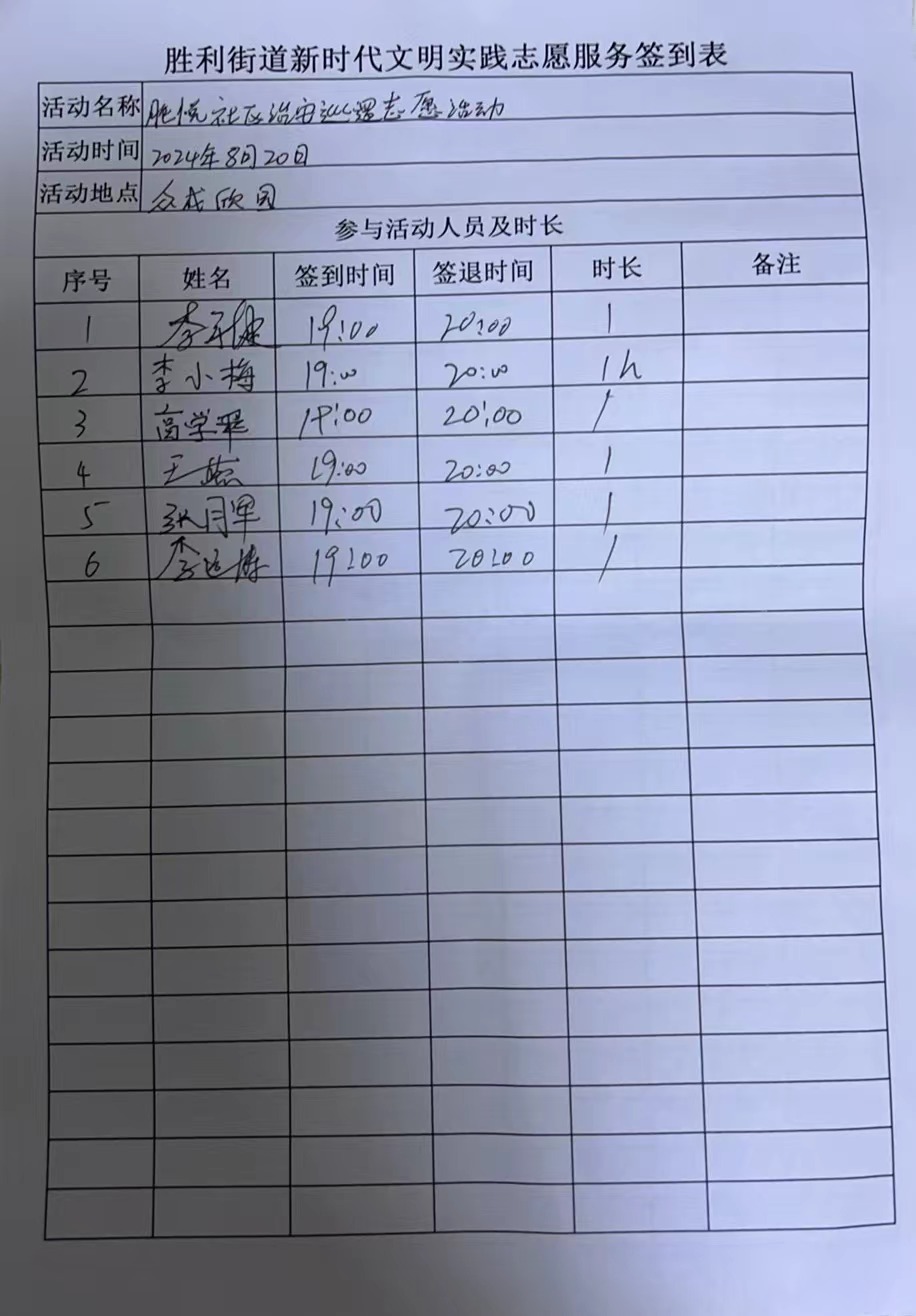 胜利街道新时代文明实践志愿服务签到表
活动名称 胜悦社区治安巡逻志愿活动
活动时间 2024年8月20日
活动地点 众成欣园
参与活动人员及时长
序号 姓名 签到时间 签退时间 时长 备注
1 19:00 20:00 1
2 李小梅 19:00 20:00 1h
3 19:00 20:00 1
4 19:00 20:00 1
5 19:00 20:00 1
6 19:00 20:00 1